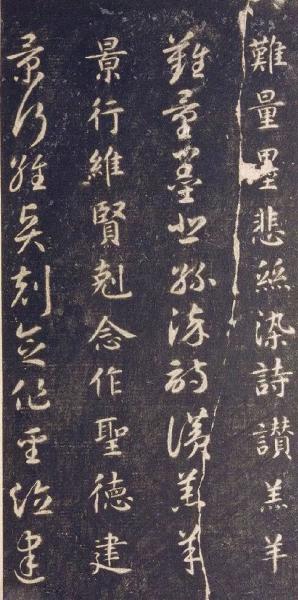 難量墨悲絲染詩讃羔羊
難量墨悲絲染詩讃羔羊
景行維賢剋念作聖徳建
景行維賢剋念作聖徳建